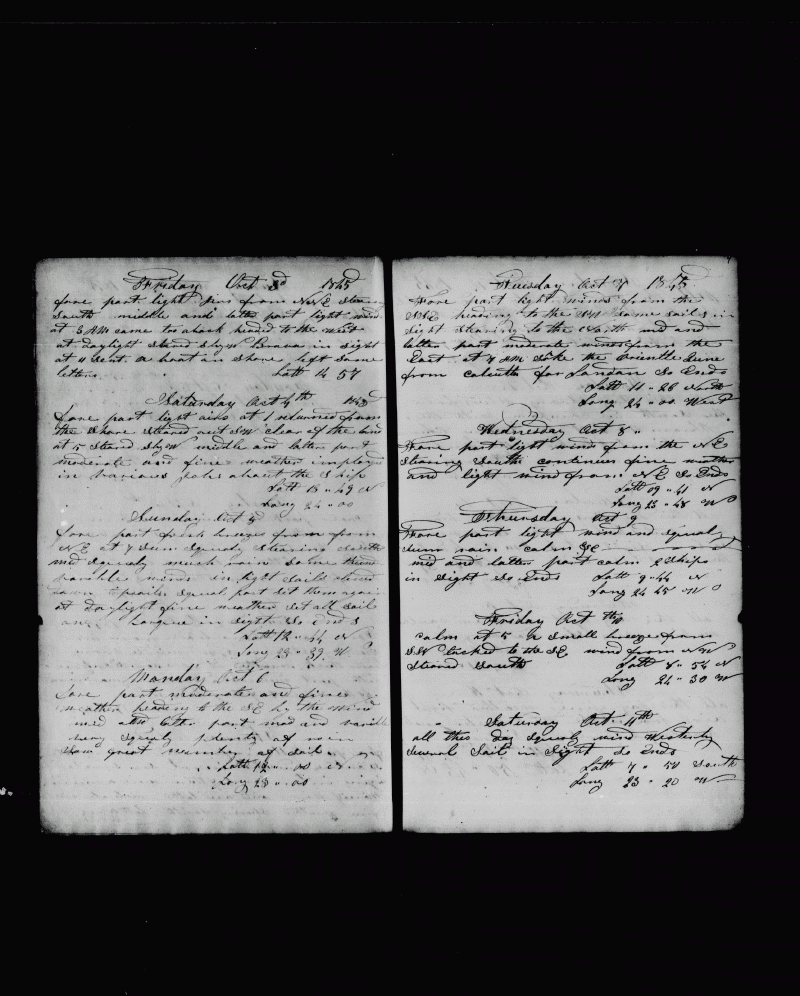 Friday Oct 3d 1845
fore part light airs from NNE stearing
South middle and latter part light wind
at 3 AM came to aback headed to the west
at daylight stood SbyW Brava in sight
at 11 sent a boat on shore left some
letters Latt 14 57
Saturday Oct 4th 1845
fore part light airs at 1 returned from
the shore stood out SW clear of the land
at 5 stood SbyW middle and latter part
moderate and fine weather imployd
in various jobs about the Ship
Latt 13 " 49 N
Long 24 " 00
Sunday Oct 5
fore part fresh breezes from
NE at 7 Squaly stearing South
mid Squaly much rain some
winds in light sails
squal part set them again
at daylight fine weather set all sail
in sight So Ends
Latt 12 " 44 N
Long 23 " 39 W
Monday Oct 6
fore part moderate and fine
weather heading to the SE the wind
mid and latter part mod and
very squaly plenty of rain
Saw great number of sail
Latt 12 " 00
Long 23 " 00
Tuesday Oct 7 1845
Fore part light winds from the
heading to the SW some sails in
sight stearing to the North mid and
latter part moderate winds from the
East at 7 AM the
from calcutta for London So Ends
Latt 11 " 28 North
Long 24 " 00 West
Wednesday Oct 8 "
Fore part light wind from the NE
stearing South continues fine wether
and light wind from NE So Ends
Latt 10 " 41 N
Long 23 " 48 W
Thursday Oct 9
Fore part light wind and squaly
sum rain calm &c
mid and latter part calm 2 Ships
in sight So Ends Latt 9 " 44 N
Long 24 45 W
Friday Oct 10th
calm at 5 a small breeze from
SW tacked to the SE wind from NW
Steared South Latt 8 " 54 N
Long 24 " 30 W
Saturday Oct 11th
all this day squaly wind Westerly
several Sail in Sight So Ends
Latt 7 " 50 South
Long 23 " 20 W